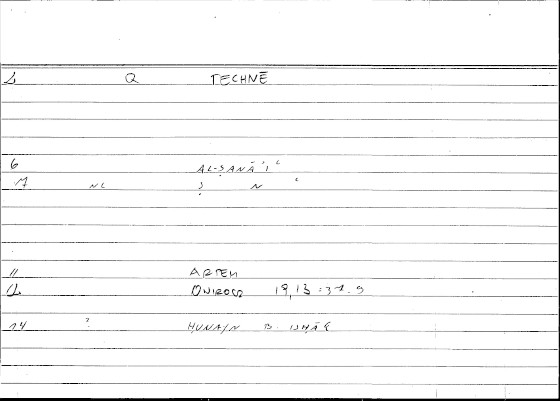 1 Q TECHNĒ
6 AL-ṢANĀʾIʿ
17 NL Ṣ N ʿ
11 ARTEM
12 ONIROCR 19,13 : 37.9
14 ? HUNAIN B. ISHĀQ